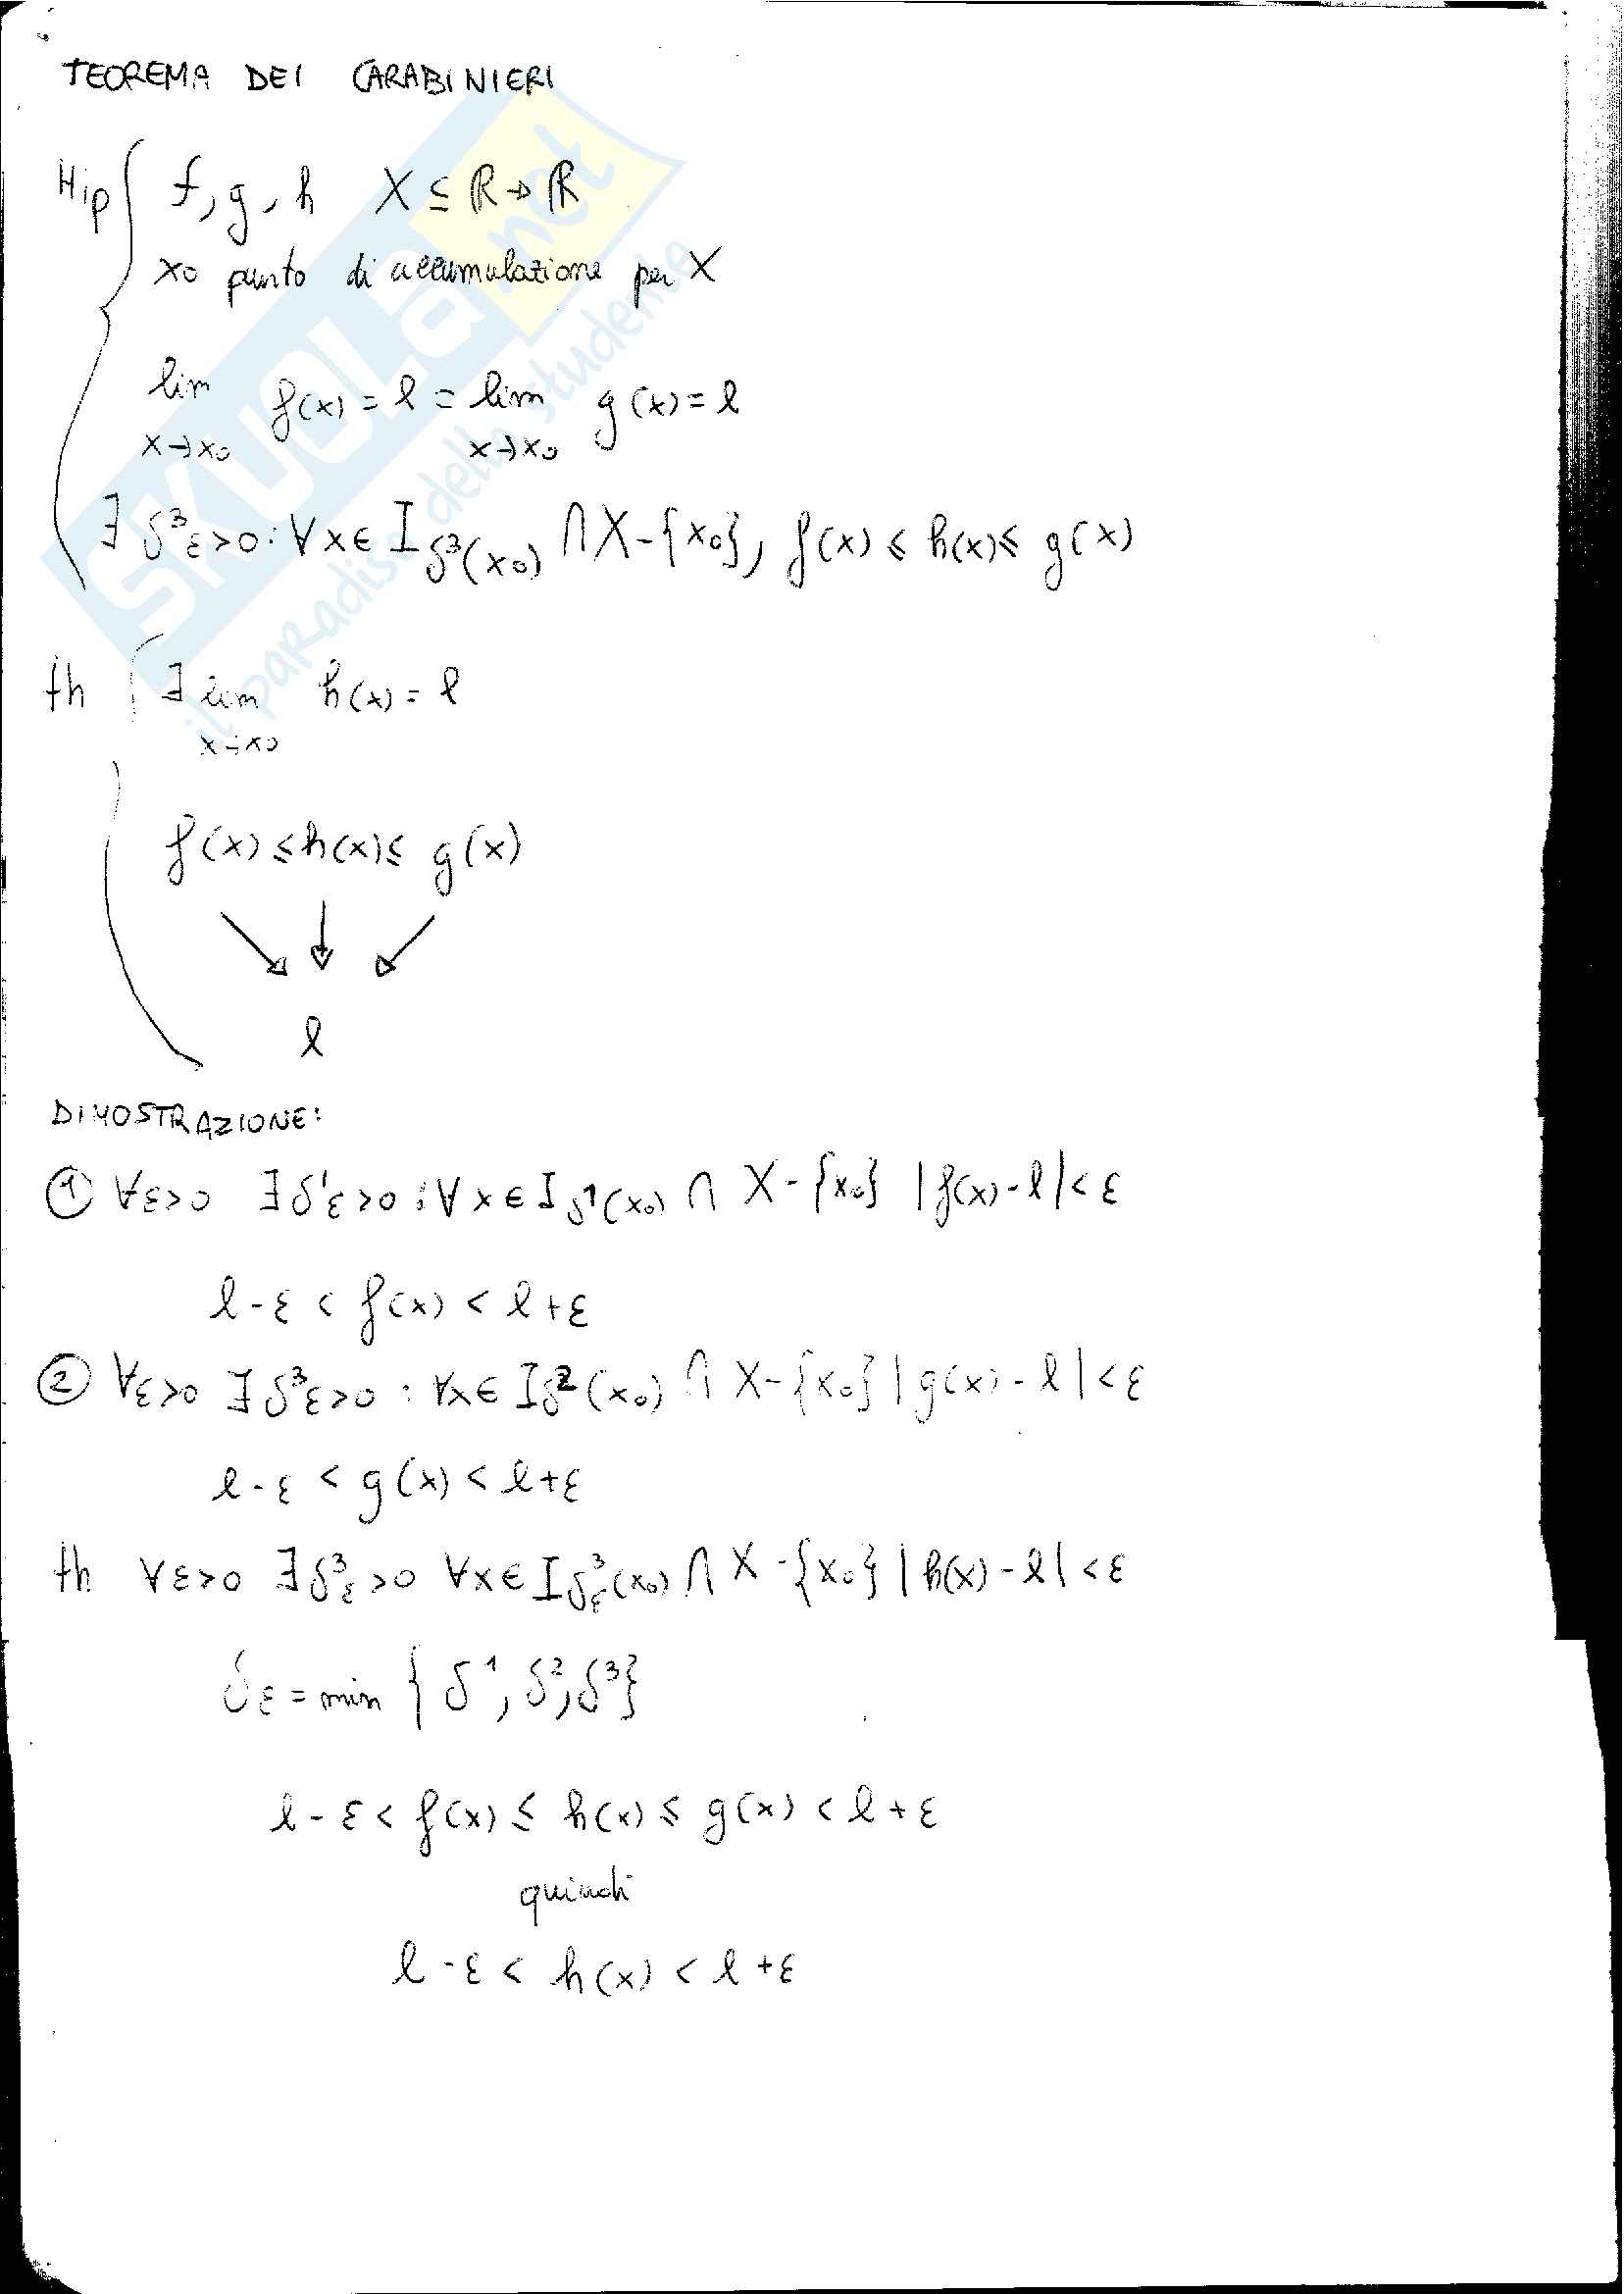 TEOREMA DEI CARABINIERI
Hip { f, g, h X ⊆ R → R
x0 punto di accumulazione per X
lim f(x) = l = lim g(x) = l
x→x0 x→x0
∃ δ³ε>0 : ∀x∈ I δ³(x0) ∩ X-{x0}, f(x) ≤ h(x) ≤ g(x)
th { ∃ lim h(x) = l
x→x0
f(x) ≤ h(x) ≤ g(x)
l
DIMOSTRAZIONE:
① ∀ε>0 ∃δ¹ε>0 : ∀x∈ I δ¹(x0) ∩ X-{x0} |f(x)-l|<ε
l-ε < f(x) < l+ε
② ∀ε>0 ∃δ³ε>0 : ∀x∈ Iδ²(x0) ∩ X-{x0} |g(x)-l|<ε
l-ε < g(x) < l+ε
th ∀ε>0 ∃δ³ε>0 ∀x∈ Iδ³ε(x0) ∩ X-{x0} |h(x)-l|<ε
δε = min {δ¹, δ², δ³}
l-ε < f(x) ≤ h(x) ≤ g(x) < l+ε
quindi
l-ε < h(x) < l+ε
SKUOLA.net
il paradiso dello studente